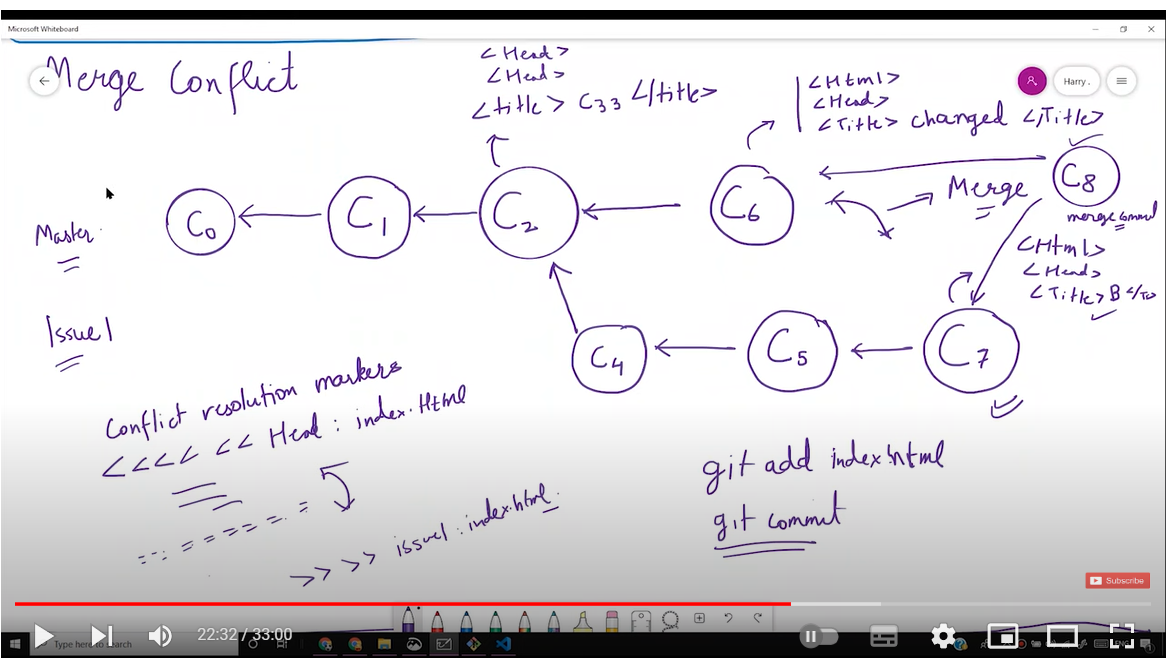 Microsoft Whiteboard
Merge Conflict
<Head>
<Head>
<title> C33 </title>
<Html>
<Head>
<Title> changed </Title>
Harry .
C0
C1
C2
C6
Merge
C8
merge commit
Master
<Html>
<Head>
<Title> B </T>
Issue1
C4
C5
C7
Conflict resolution markers
<<<< << Head : index.Html
=======
>>>> issue1 : index.html
git add index.html
git commit
Subscribe
22:32 / 33:00
Type here to search